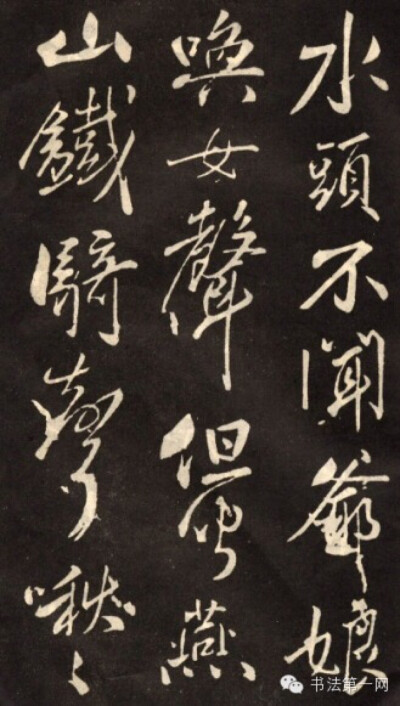 水頭不聞爺娘
喚女聲但聞燕
山鐵騎聲啾々
书法第一网